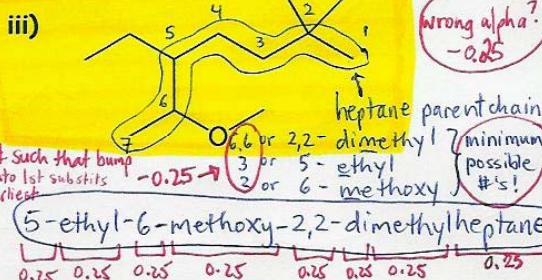 iii)
4
2
5
3
1
wrong alpha?
-0.25
6
7
O
heptane parent chain
6,6 or 2,2 - dimethyl
3 or 5 - ethyl
2 or 6 - methoxy
minimum
possible
#'s!
such that bump
into 1st substits
-0.25 →
5-ethyl-6-methoxy-2,2-dimethylheptane
0.25 0.25 0.25 0.25 0.25 0.25 0.25 0.25